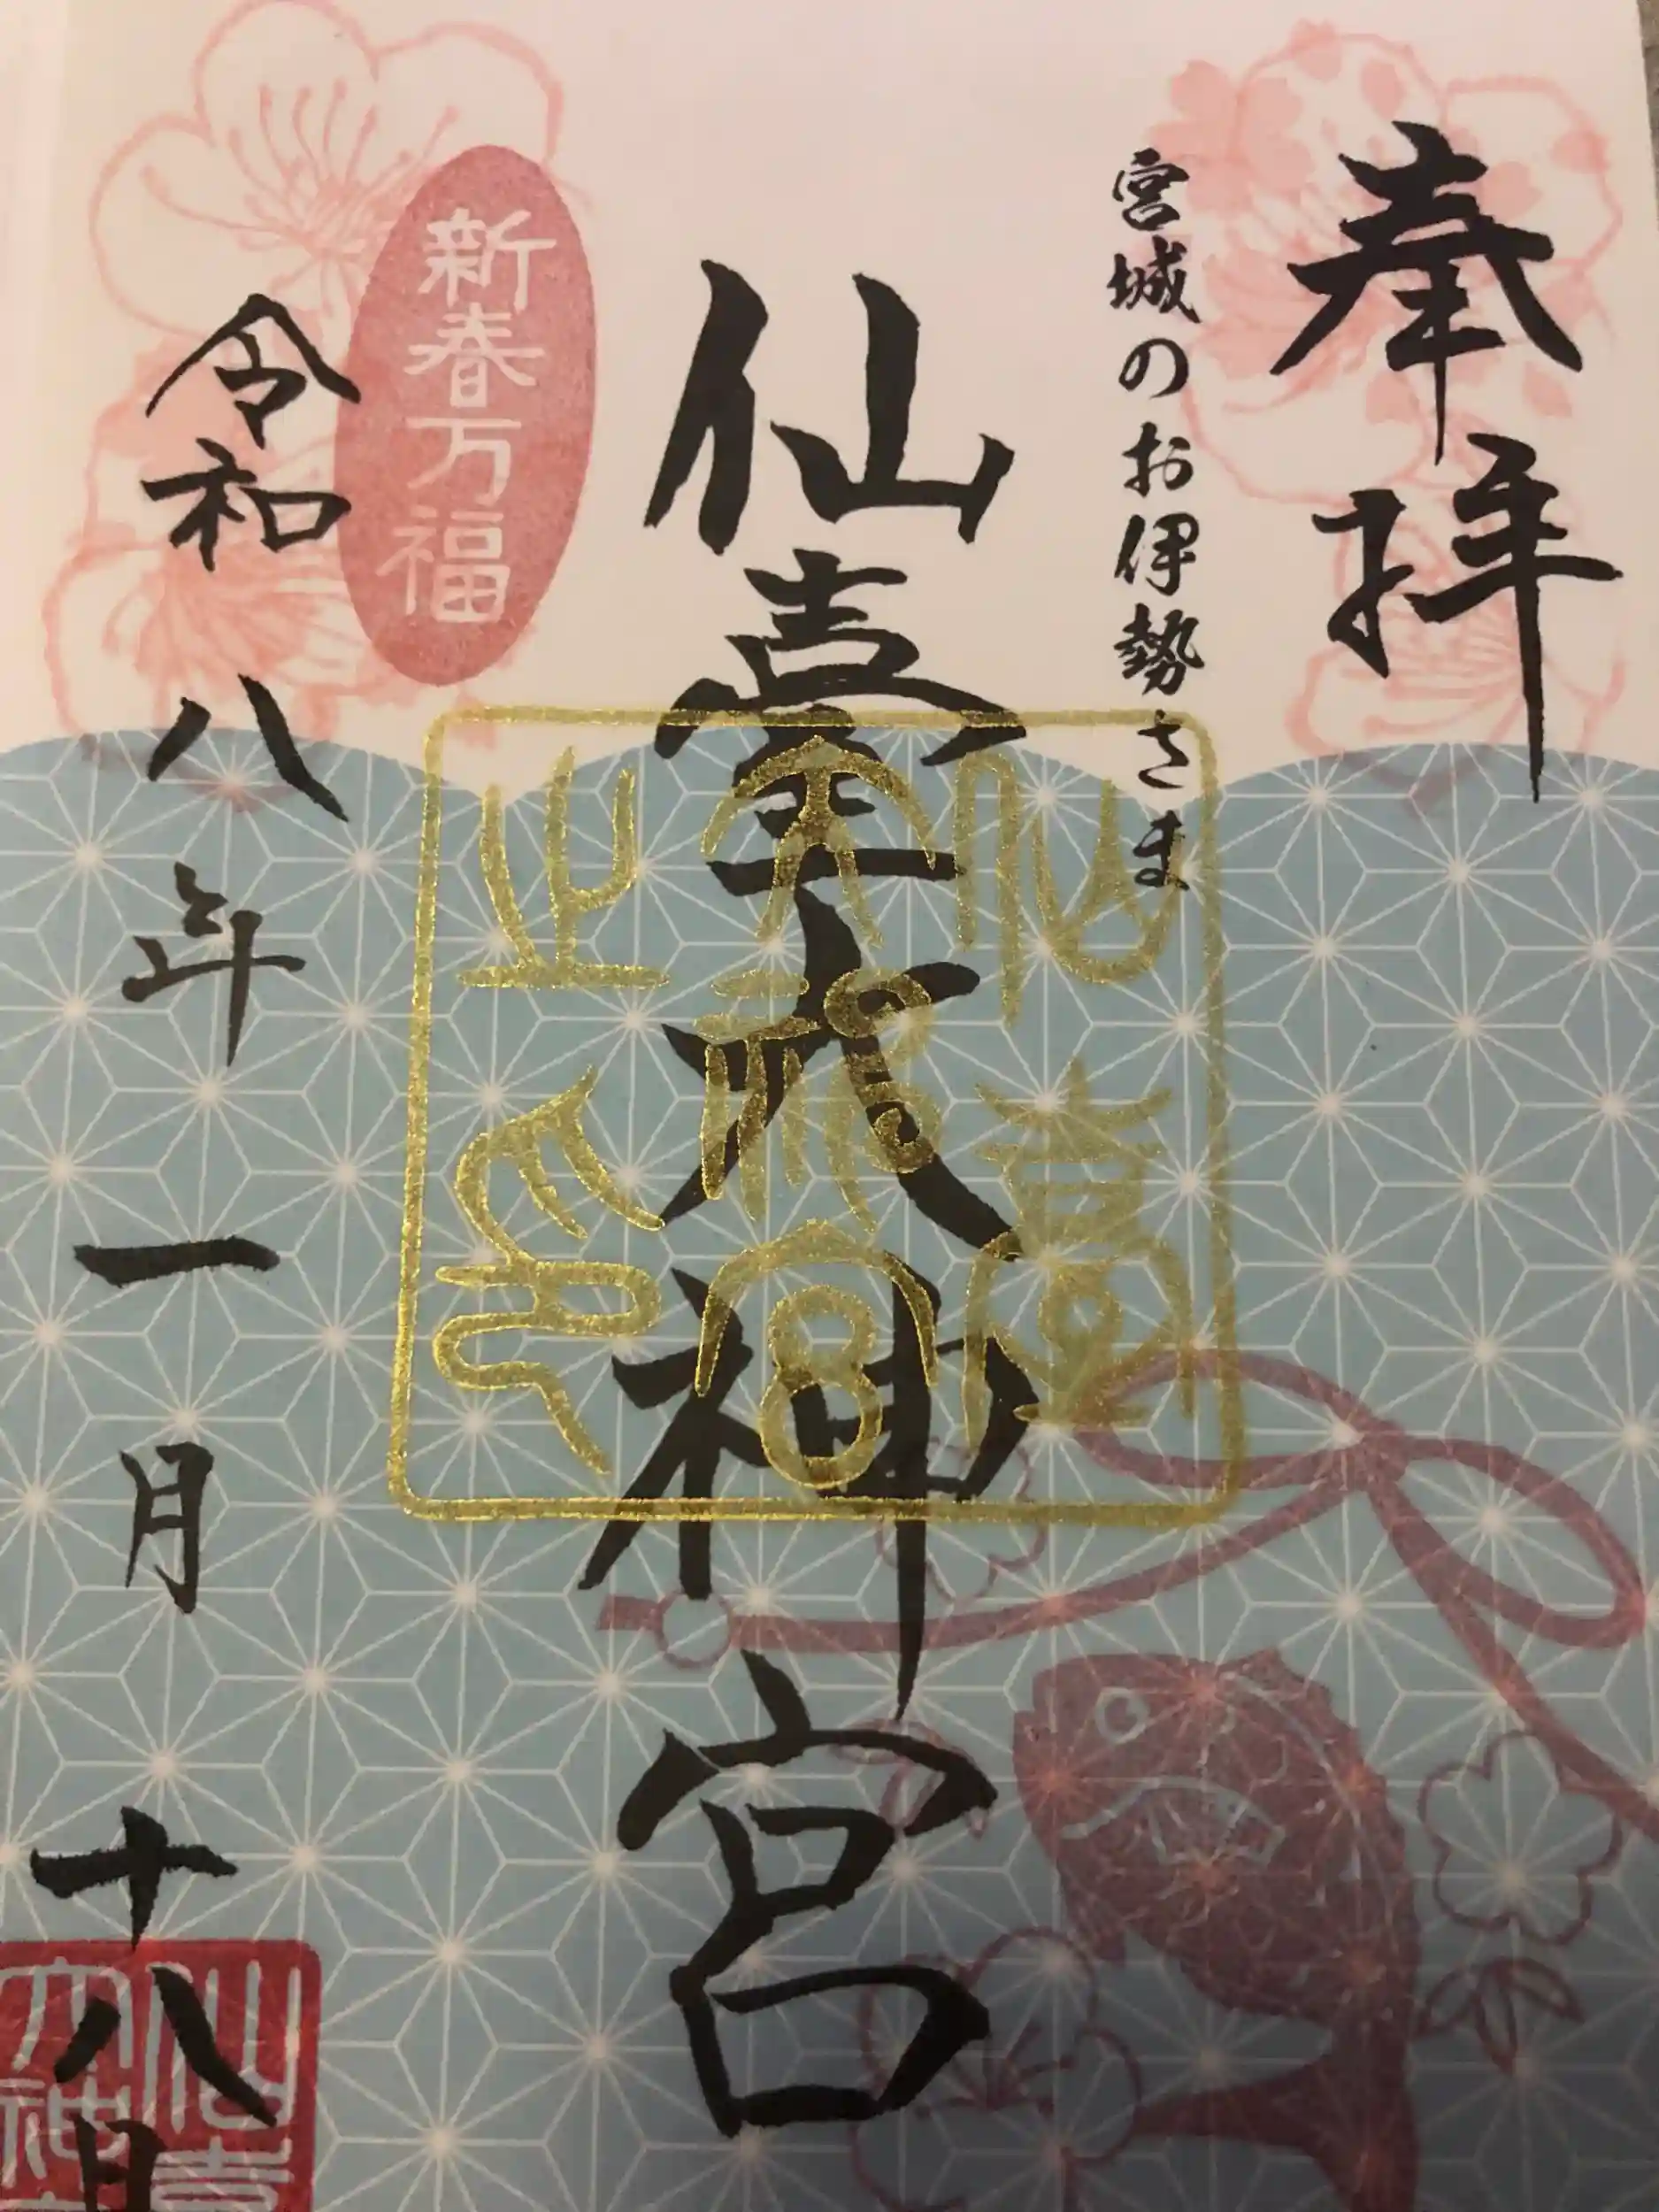 奉拝
宮城のお伊勢さま
仙臺大神宮
仙臺
大神宮
之印
新春万福
令和八年一月十八日
仙臺
大神